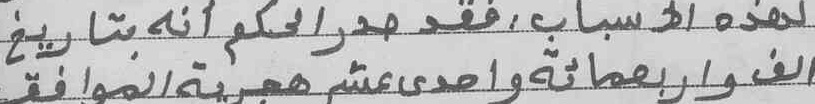 لهذه الاسباب، فقد صدر الحكم أنه بتاريخ
الف واربعمائة واحدى عشر هجرية الموافق